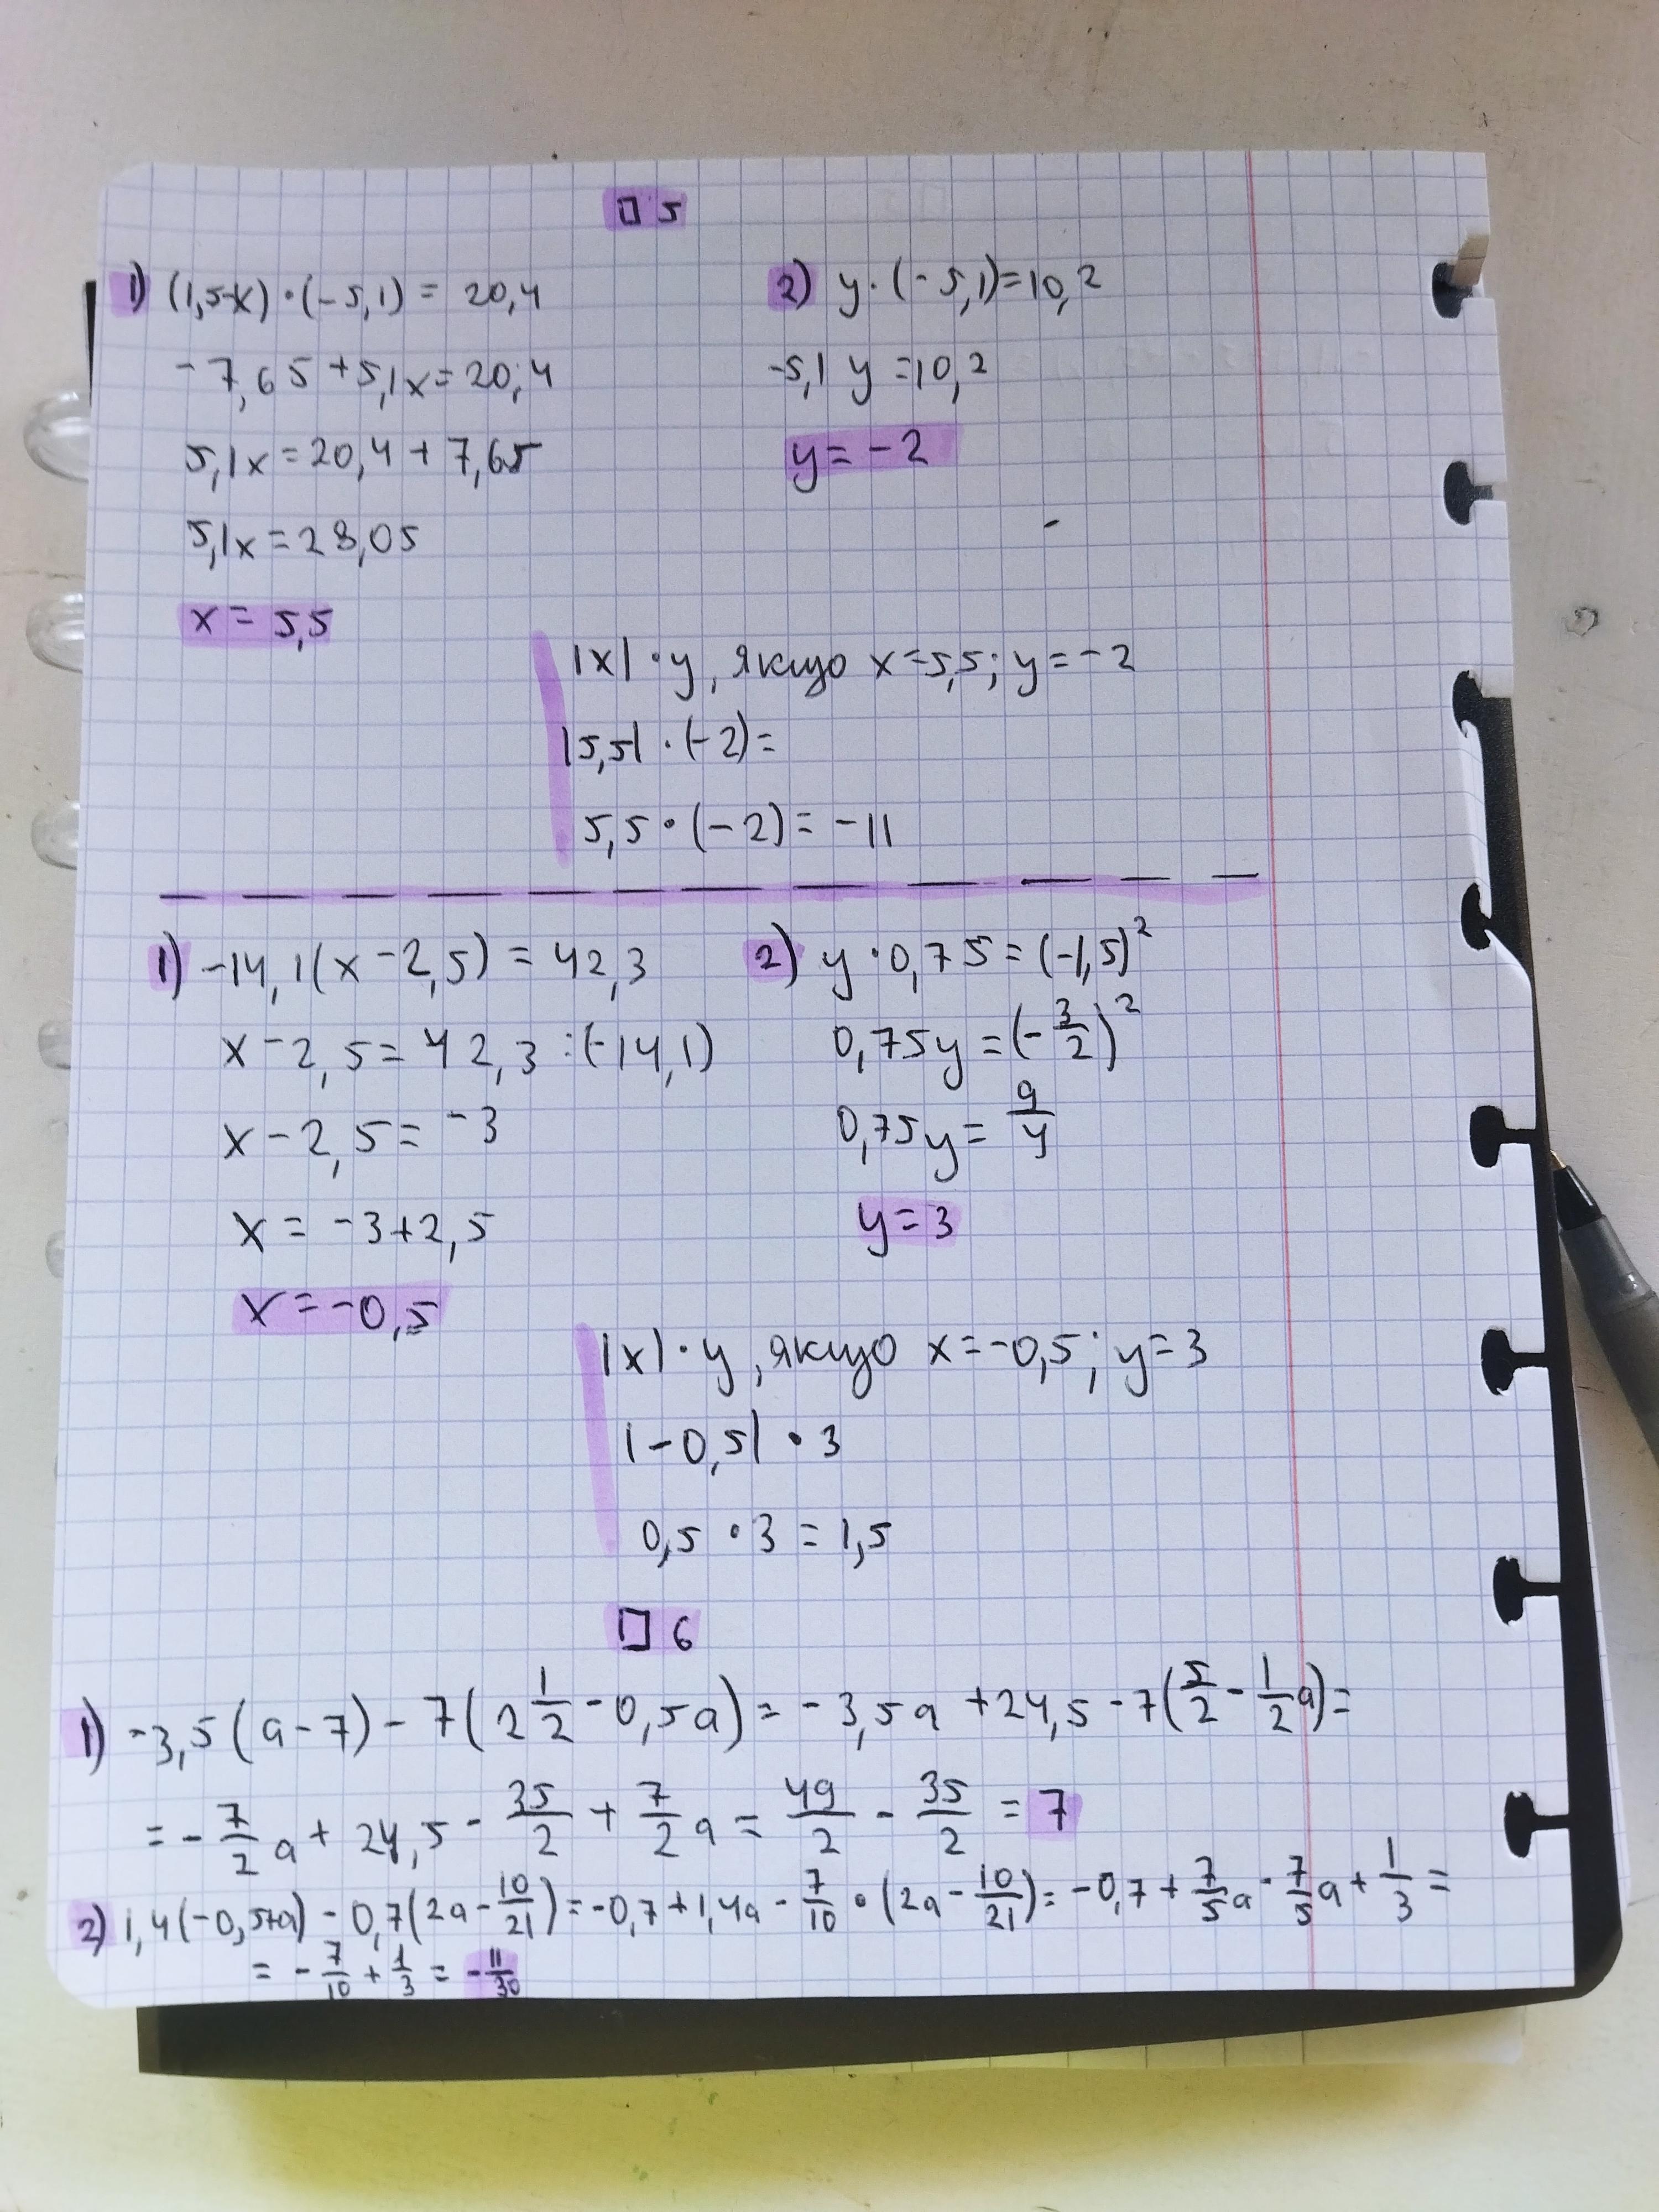 □ 5
1) (1,5-x)·(-5,1) = 20,4
-7,65+5,1x=20,4
5,1x=20,4+7,65
5,1x=28,05
x = 5,5
2) y·(-5,1)=10,2
-5,1 y =10,2
y= -2
|x|·y, якщо x=5,5; y=-2
|5,5|·(-2)=
5,5·(-2)= -11
1) -14,1(x-2,5) = 42,3
x-2,5=42,3:(-14,1)
x-2,5= -3
x = -3+2,5
x=-0,5
2) y·0,75=(-1,5)²
0,75y=(-3/2)²
0,75y= 9/4
y=3
|x|·y, якщо x=-0,5; y=3
|-0,5|·3
0,5·3=1,5
□ 6
1) -3,5(a-7)-7(2 1/2-0,5a)=-3,5a+24,5-7(5/2-1/2a)=
=-7/2a+24,5-35/2+7/2a=49/2-35/2=7
2) 1,4(-0,5+a)-0,7(2a-10/21)=-0,7+1,4a-7/10·(2a-10/21)=-0,7+7/5a-7/5a+1/3=
=-7/10+1/3=-11/30